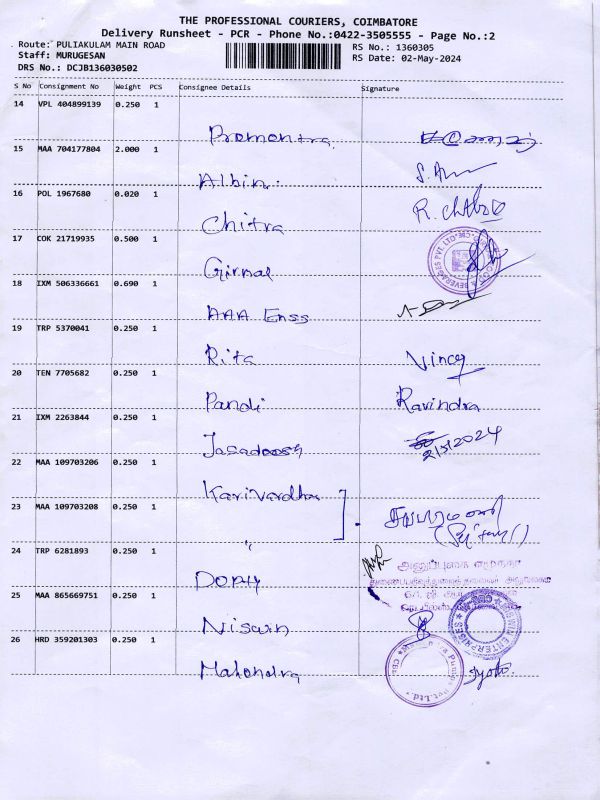 THE PROFESSIONAL COURIERS, COIMBATORE
Delivery Runsheet - PCR - Phone No.:0422-3505555 - Page No.:2
Route: PULIAKULAM MAIN ROAD RS No.: 1360305
Staff: MURUGESAN RS Date: 02-May-2024
DRS No.: DCJB136030502
S No Consignment No Weight PCS Consignee Details Signature
14 VPL 404899139 0.250 1
15 MAA 704177804 2.000 1
Albin S.
16 POL 1967680 0.020 1
Chitra R.
17 COK 21719935 0.500 1
18 IXM 506336661 0.690 1
AAA
19 TRP 5370041 0.250 1
Rita Vincy
20 TEN 7705682 0.250 1
Pandi Ravindra
21 IXM 2263844 0.250 1
2/5/2024
22 MAA 109703206 0.250 1
23 MAA 109703208 0.250 1
24 TRP 6281893 0.250 1
25 MAA 865669751 0.250 1
ENTERPRISES
26 HRD 359201303 0.250 1
Mahendra